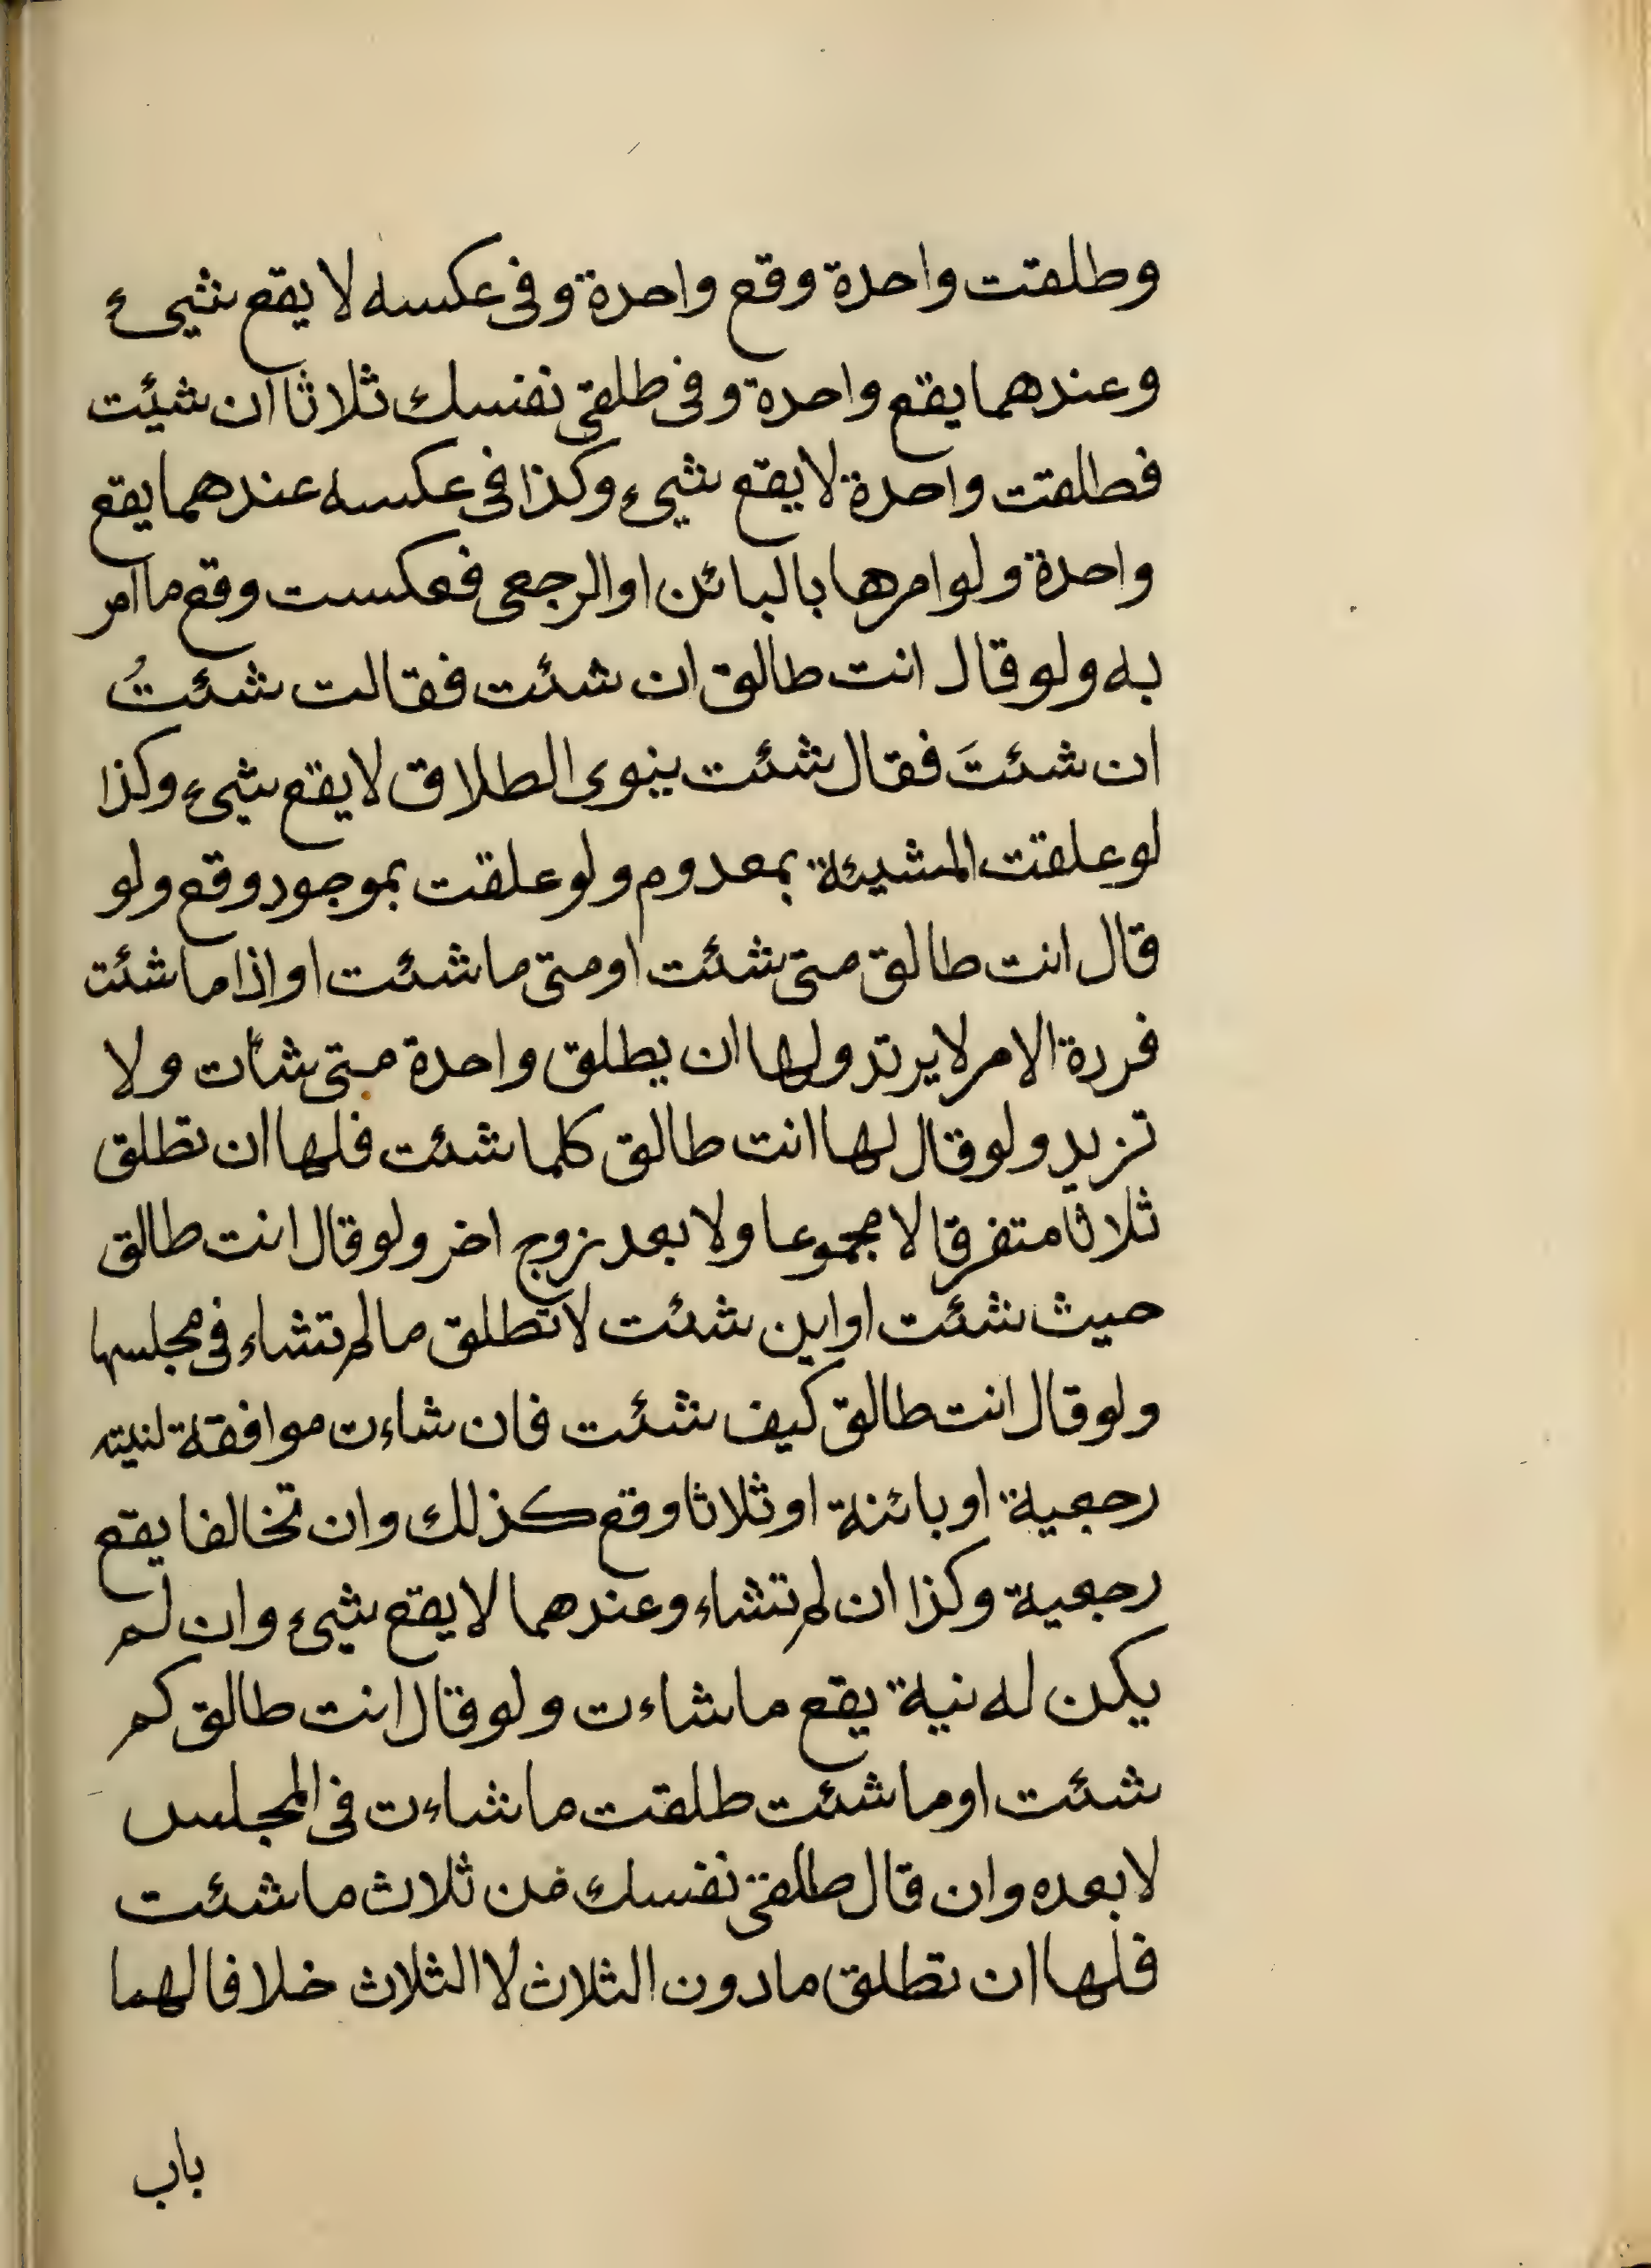 وطلقت واحدة وقع واحدة وفى عكسه لا يقع شيىء
وعندهما يقع واحدة وفى طلقى نفسك ثلاثا ان شيئت
فطلقت واحدة لا يقع شيىء وكذا فى عكسه عندهما يقع
واحدة ولو امرها بالبائن او الرجعى فعكست وقع ما امر
به ولو قال انت طالق ان شئت فقالت شئتُ
ان شئتَ فقال شئت ينوى الطلاق لا يقع شيىء وكذا
لو علقت المشيئة بمعدوم ولو علقت بموجود وقع ولو
قال انت طالق متى شئت او متى ما شئت او اذا ما شئت
فردة الامر لا يرتد ولها ان يطلق واحدة متى شأت ولا
تزيد ولو قال لها انت طالق كلما شئت فلها ان تطلق
ثلاثا متفرقا لا مجموعا ولا بعد زوج اخر ولو قال انت طالق
حيث شئت او اين شئت لا تطلق ما لم تشاء فى مجلسها
ولو قال انت طالق كيف شئت فان شاءت موافقة لنيته
رجعية او بائنة او ثلاثا وقع كذلك وان تخالفا يقع
رجعية وكذا ان لم تشاء وعندهما لا يقع شيىء وان لم
يكن له نية يقع ما شاءت ولو قال انت طالق كم
شئت او ما شئت طلقت ما شاءت فى المجلس
لا بعده وان قال طلقى نفسك من ثلاث ما شئت
فلها ان تطلق ما دون الثلاث لا الثلاث خلافا لهما
باب